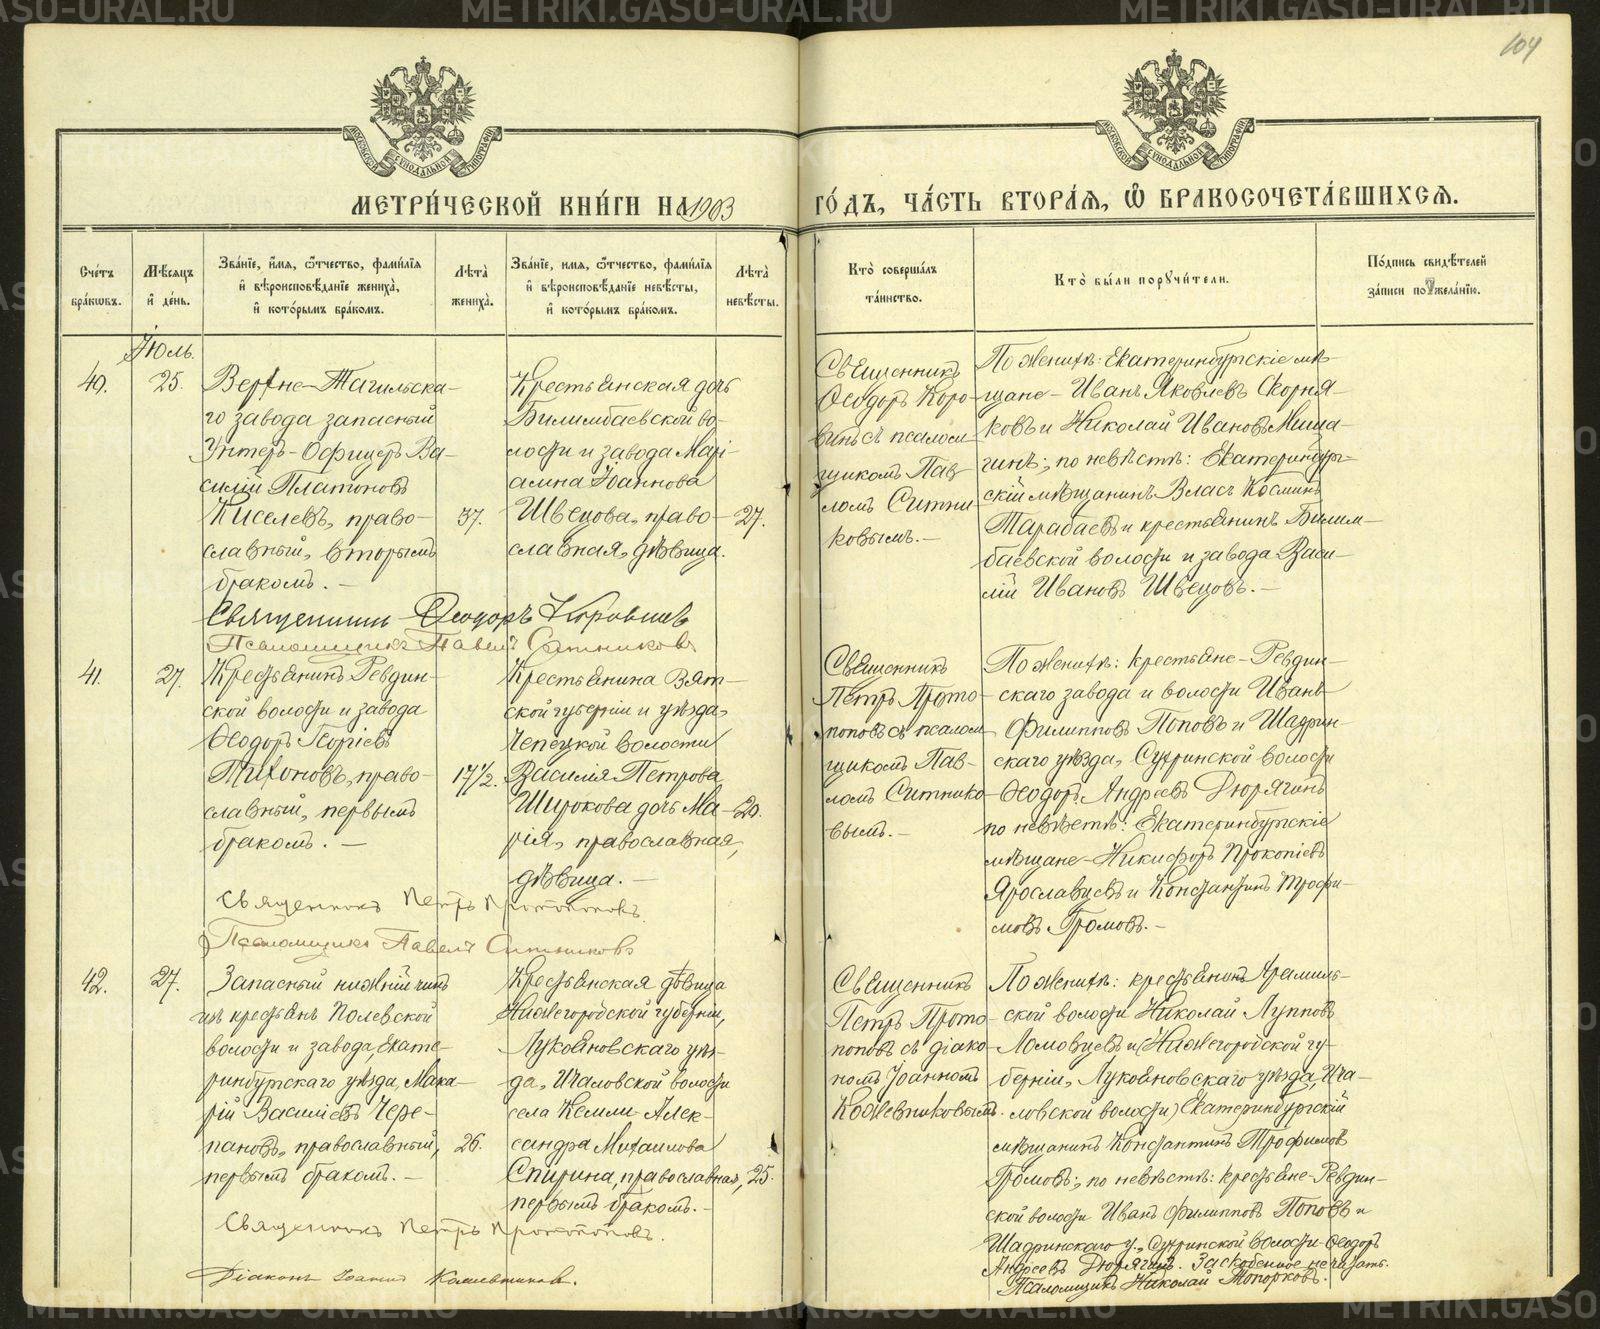 104
МЕТРИ́ЧЕСКОЙ КНИ́ГИ НА 1903 ГО́ДЪ, ЧА́СТЬ ВТОРА́Я, Ѿ БРАКОСОЧЕТА́ВШИХСЯ.
Сче́тъ бра́ковъ.
Мѣ́сяцъ и҆ де́нь.
Зва́нїе, и҆́мя, ѻ҆́тчество, фами́лїя и҆ вѣроисповѣ́данїе жениха̀, и҆ кото́рымъ бра́комъ.
Лѣта̀ жениха̀.
Зва́нїе, имя, ѻ҆́тчество, фами́лїя и҆ вѣроисповѣ́данїе невѣ́сты, и҆ кото́рымъ бра́комъ.
Лѣта̀ невѣ́сты.
Кто̀ соверша́лъ та́инство.
Кто̀ бы́ли порꙋчи́тели.
По́дпись свидѣ́телей за́писи по ѹ҆жела́нїю.
Іюль.
40.
25.
Верхне-Тагильска-
го завода запасный
Унтеръ-Офицеръ Ва-
силій Платоновъ
Киселевъ, право-
славный, вторымъ
бракомъ. —
37.
Крестьянская дочь
Билимбаевской во-
лости и завода Марі-
Іоаннова
Швецова, право-
славная, дѣвица.
27.
Священникъ
Ѳеодоръ Коро-
винъ съ псалом-
щикомъ Пав-
ломъ Ситни-
ковымъ. —
По женихѣ: Екатеринбургскіе мѣ-
щане – Иванъ Яковлевъ Скорня-
ковъ и Николай Ивановъ Миша-
гинъ; по невѣстѣ: Екатеринбург-
скій мѣщанинъ Власъ Косминъ
Тарабаевъ и крестьянинъ Билим-
баевской волости и завода Васи-
лій Ивановъ Швецовъ. —
Священникъ Ѳеодоръ Коровинъ
Псаломщикъ Павелъ Ситниковъ
41.
27.
Крестьянинъ Ревдин-
ской волости и завода
Ѳеодоръ Георгіевъ
Тихоновъ, право-
славный, первымъ
бракомъ. —
17 1/2.
Крестьянина Вят-
ской губерніи и уѣзда,
Чепецкой волости
Василія Петрова
Широкова дочь Ма-
рія, православная,
дѣвица. —
20.
Священникъ
Петръ Прото-
поповъ съ псалом-
щикомъ Пав-
ломъ Ситнико-
вымъ. —
По женихѣ: крестьяне – Ревдин-
скаго завода и волости Иванъ
Филипповъ Поповъ и Шадрин-
скаго уѣзда, Сухринской волости
Ѳеодоръ Андреевъ Дюрягинъ
по невѣстѣ: Екатеринбургскіе
мѣщане – Никифоръ Прокопіевъ
Ярославцевъ и Константинъ Трофи-
мовъ Громовъ. —
Священникъ Петръ Протопоповъ.
Псаломщикъ Павелъ Ситниковъ
42.
27.
Запасный нижній чинъ
изъ крестьянъ Полевской
волости и завода, Екате-
ринбургскаго уѣзда, Мака-
рій Василіевъ Чере-
пановъ, православный,
первымъ бракомъ. —
26.
Крестьянская дѣвица
Нижегородской губерніи,
Лукояновскаго уѣз-
да, Ичаловской волости
села Кемли Алек-
сандра Михаилова
Спирина, православная,
первымъ бракомъ. —
25.
Священникъ
Петръ Прото-
поповъ съ діако-
номъ Іоанномъ
Кожевниковымъ.
По женихѣ: крестьянинъ Арамиль-
ской волости Николай Лупповъ
Ломовцевъ и (Нижегородской гу-
берніи, Лукояновскаго уѣзда, Ича-
ловской волости) Екатеринбургскій
мѣщанинъ Константинъ Трофимовъ
Громовъ; по невѣстѣ: крестьяне – Ревдин-
ской волости Иванъ Филипповъ Поповъ и
Шадринскаго у., Сухринской волости – Ѳеодоръ
Андреевъ Дюрягинъ. Заскобенное не читать.
Псаломщикъ Николай Топорковъ.
Священникъ Петръ Протопоповъ.
Діаконъ Іоаннъ Кожевниковъ.
METRIKI.GASO-URAL.RU